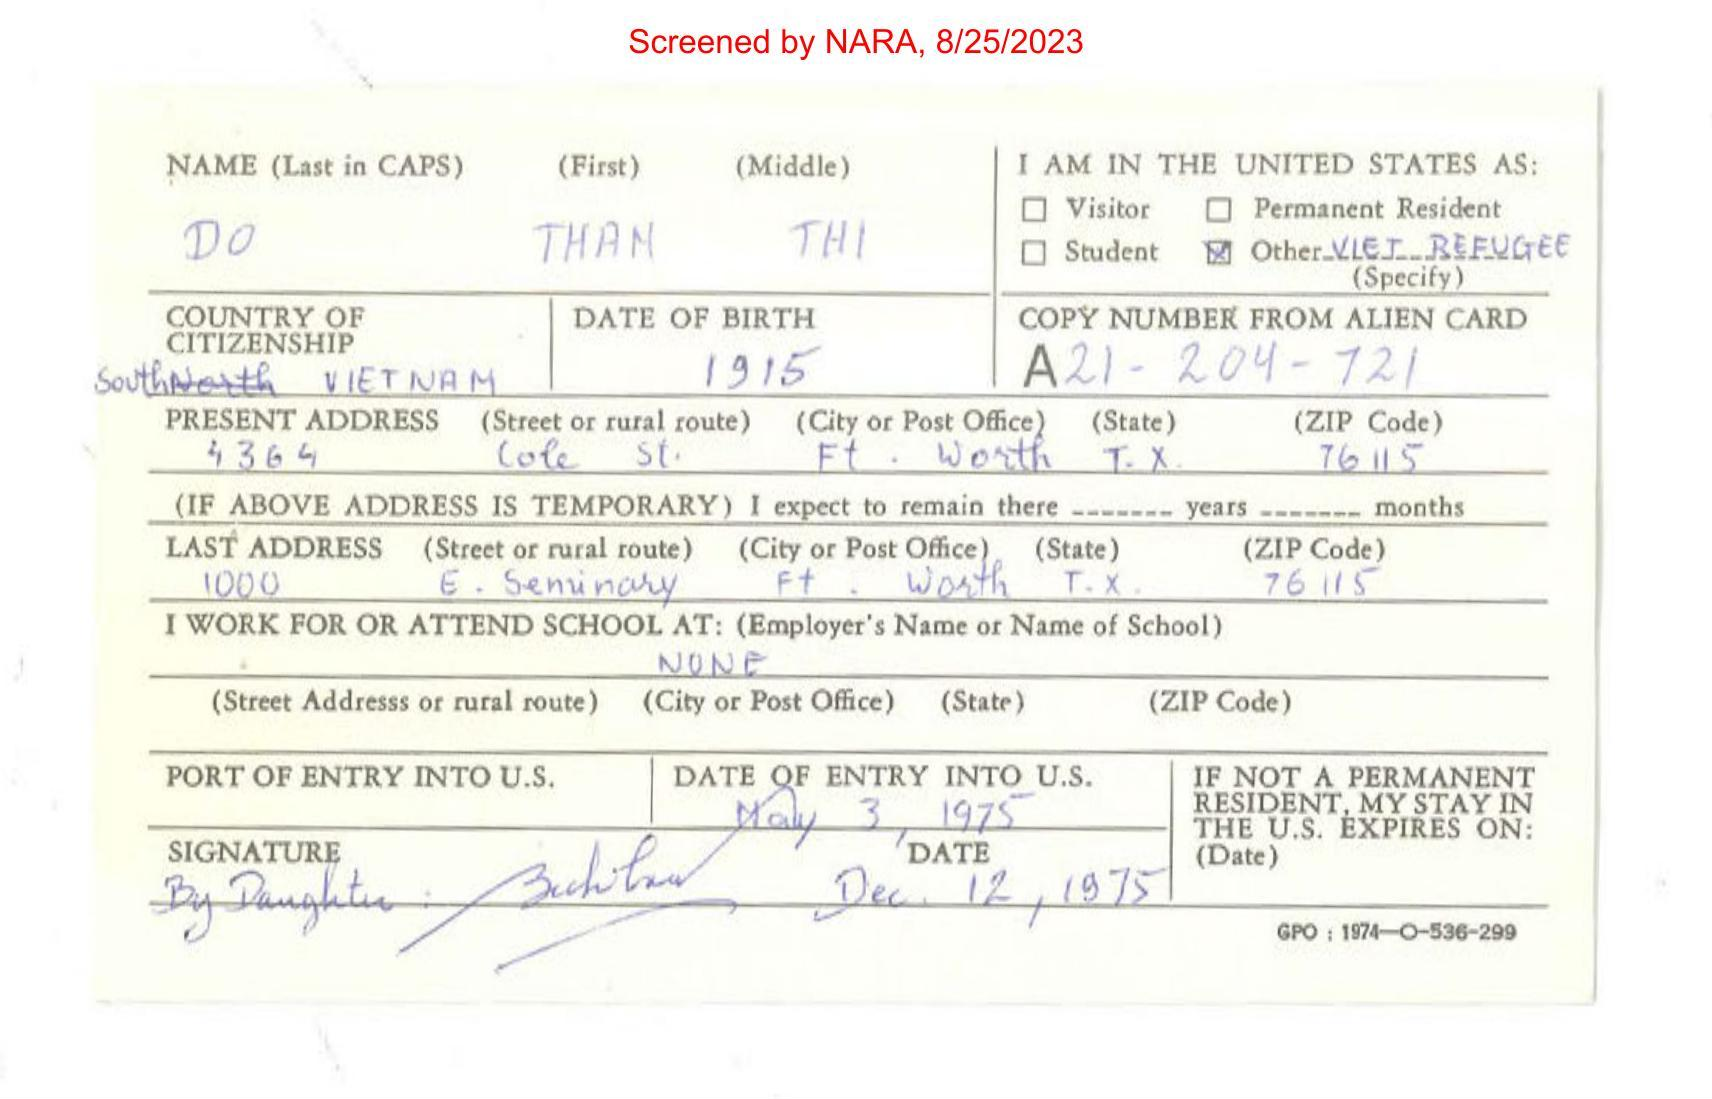 Screened by NARA, 8/25/2023
NAME (Last in CAPS) (First) (Middle)
DO THAM THI
I AM IN THE UNITED STATES AS:
☐ Visitor ☐ Permanent Resident
☐ Student ☒ Other VIET REFUGEE
(Specify)
COUNTRY OF
CITIZENSHIP
South North VIETNAM
DATE OF BIRTH
1915
COPY NUMBER FROM ALIEN CARD
A21-204-721
PRESENT ADDRESS (Street or rural route) (City or Post Office) (State) (ZIP Code)
4364 Cole St. Ft. Worth T.X. 76115
(IF ABOVE ADDRESS IS TEMPORARY) I expect to remain there ------- years ------- months
LAST ADDRESS (Street or rural route) (City or Post Office) (State) (ZIP Code)
1000 E. Seminary Ft. Worth T.X. 76115
I WORK FOR OR ATTEND SCHOOL AT: (Employer's Name or Name of School)
NONE
(Street Addresss or rural route) (City or Post Office) (State) (ZIP Code)
PORT OF ENTRY INTO U.S.
DATE OF ENTRY INTO U.S.
May 3, 1975
IF NOT A PERMANENT
RESIDENT, MY STAY IN
THE U.S. EXPIRES ON:
(Date)
SIGNATURE DATE
By Daughter : Dec. 12, 1975
GPO : 1974—O-536-299